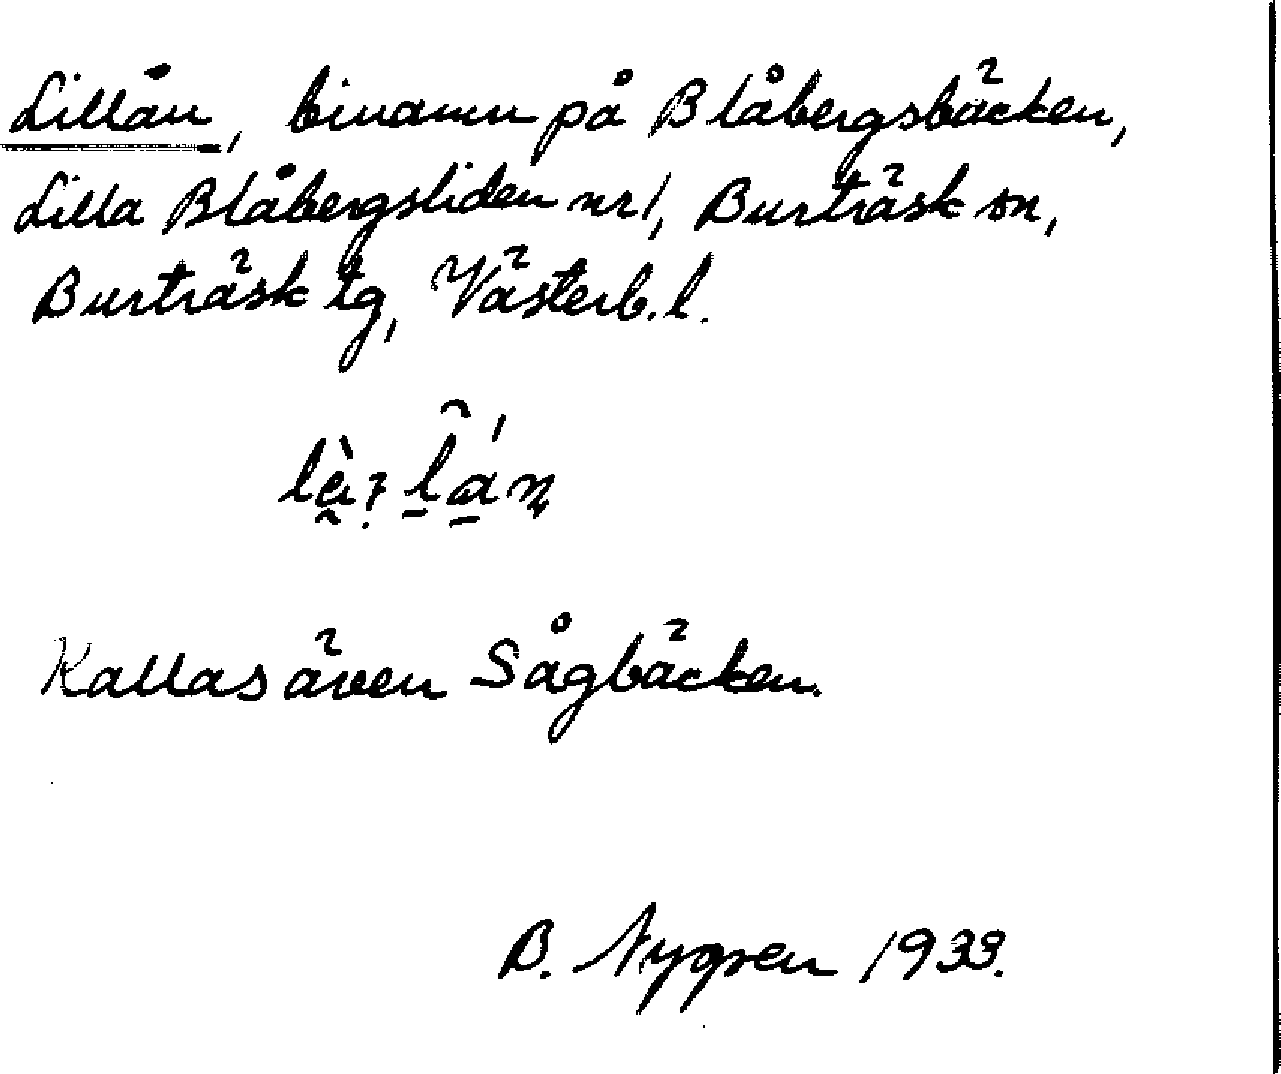 Lillån, binamn på Blåbergsbäcken,
Lilla Blåbergsliden nr 1, Burträsk sn,
Burträsk tg, Västerb. l.
Kallas även Sågbäcken.
B. Nygren 1933.